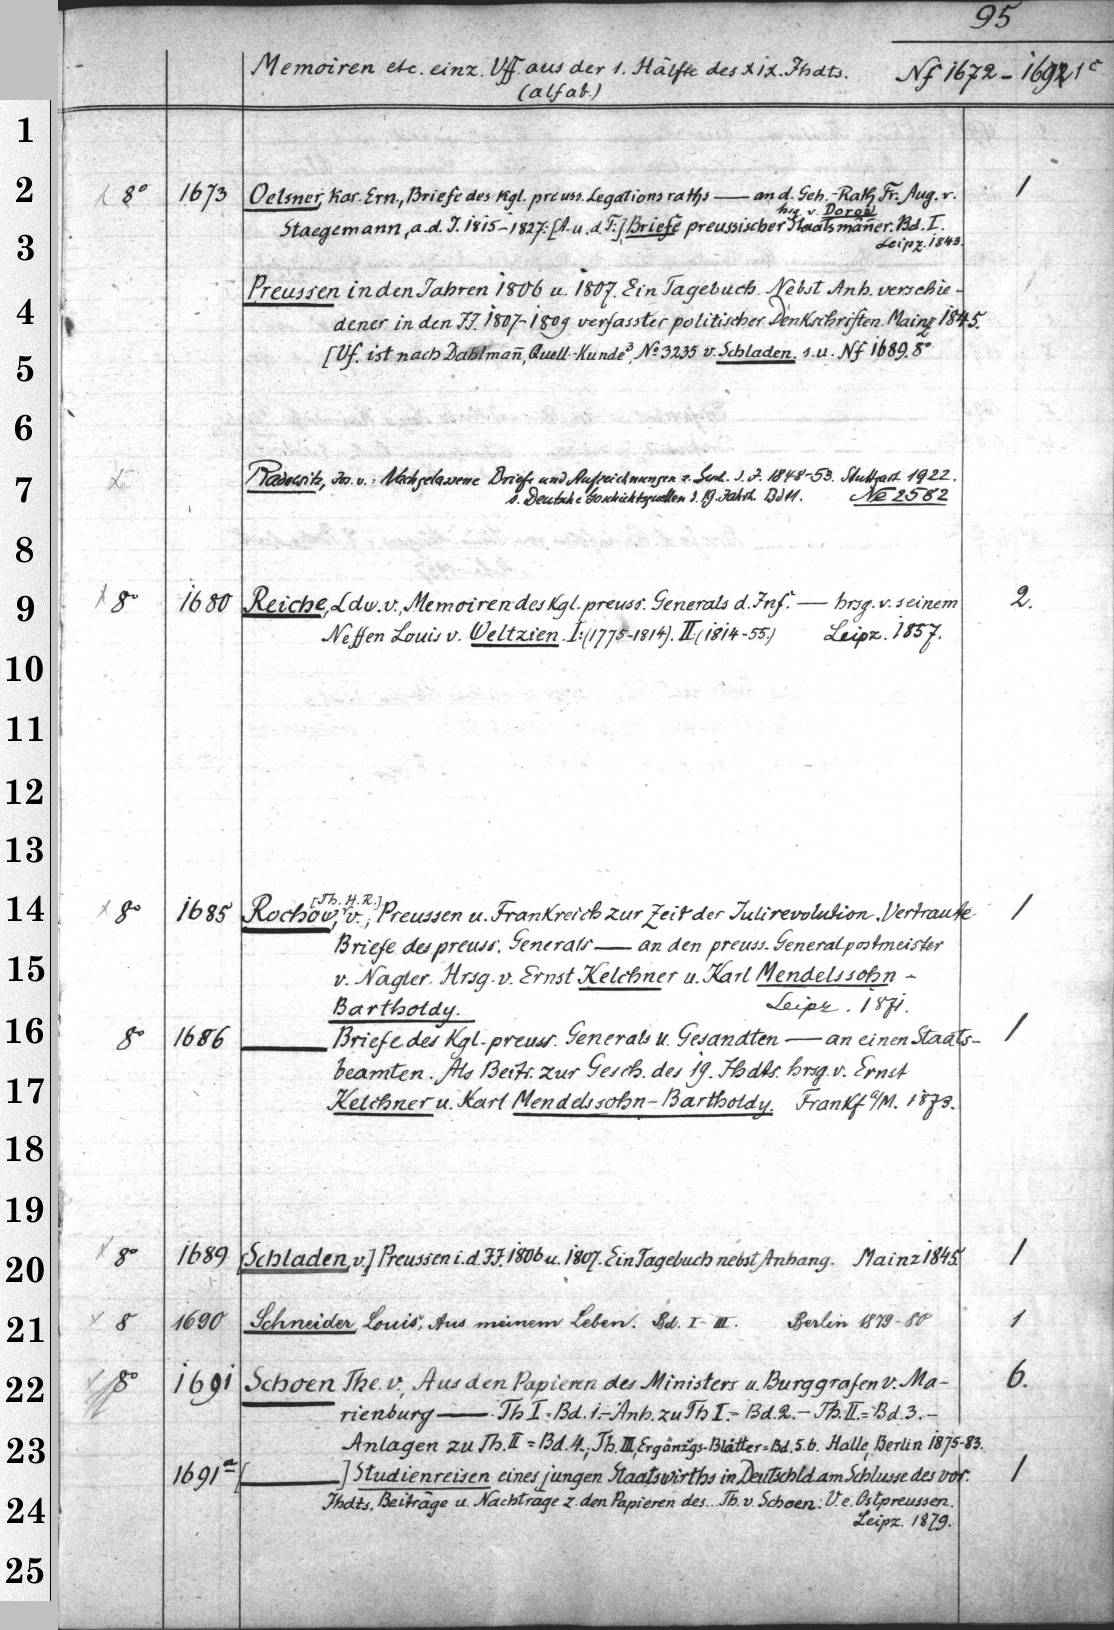 95
Memoiren etc. einz. Vff. aus der 1. Hälfte des XIX. Jhdts. Nf 1672 – 1692 1c
(alfab.)
1
2 8° 1673 Oelsner, Kar. Ern., Briefe des kgl. preuss. Legationsraths — an d. Geh.-Rath Fr. Aug. v. 1
hrg. v. Dorow
Staegemann, a. d. J. 1815–1827. [A. u. d. T:] Briefe preussischer Staatsmäñer. Bd. I.
3 Leipz. 1843.
Preussen in den Jahren 1806 u. 1807. Ein Tagebuch. Nebst Anh. verschie-
4 dener in den JJ. 1807–1809 verfasster politischer Denkschriften. Mainz 1845.
5 [Vf. ist nach Dahlmañ, Quell.-Kunde3, No 3235 v. Schladen. s. u. Nf 1689. 8°
6
7 Radowitz, Jos. v.: Nachgelassene Briefe und Aufzeichnungen z. Gesch. d. J. 1848–53. Stuttgart 1922.
s. Deutsche Geschichtsquellen d. 19. Jahrh. Bd 11. No 2582
8
9 8° 1680 Reiche, Ldw. v., Memoiren des kgl. preuss. Generals d. Inf. — hrsg. v. seinem 2.
Neffen Louis v. Weltzien. I: (1775–1814). II: (1814–55.) Leipz. 1857.
10
11
12
13
[Th. H. R.]
14 8° 1685 Rochow, v., Preussen u. Frankreich zur Zeit der Julirevolution. Vertraute 1
Briefe des preuss. Generals — an den preuss. Generalpostmeister
15 v. Nagler. Hrsg. v. Ernst Kelchner u. Karl Mendelssohn-
Bartholdy. Leipz. 1871.
16 8° 1686 — Briefe des Kgl. preuss. Generals u. Gesandten — an einen Staats- 1
beamten. Als Beitr. zur Gesch. des 19. Jhdts. hrsg. v. Ernst
17 Kelchner u. Karl Mendelssohn-Bartholdy. Frankf a/M. 1873.
18
19
20 8° 1689 [Schladen, v.] Preussen i. d. JJ. 1806 u. 1807. Ein Tagebuch nebst Anhang. Mainz 1845. 1
21 8 1690 Schneider, Louis, Aus meinem Leben. Bd. I–III. Berlin 1879–80 1
22 8° 1691 Schoen The. v., Aus den Papieren des Ministers u. Burggrafen v. Ma- 6.
rienburg — Th I = Bd. 1. – Anh. zu Th I. – Bd. 2. – Th. II. = Bd. 3. –
23 Anlagen zu Th. II = Bd. 4., Th. III, Ergänzgs-Blätter = Bd. 5. 6. Halle, Berlin 1875–83.
1691a [—] Studienreisen eines jungen Staatswirths in Deutschld. am Schlusse des vor. 1
24 Jhdts. Beiträge u. Nachträge z. den Papieren des... Th. v. Schoen. V. e. Ostpreussen.
Leipz. 1879.
25